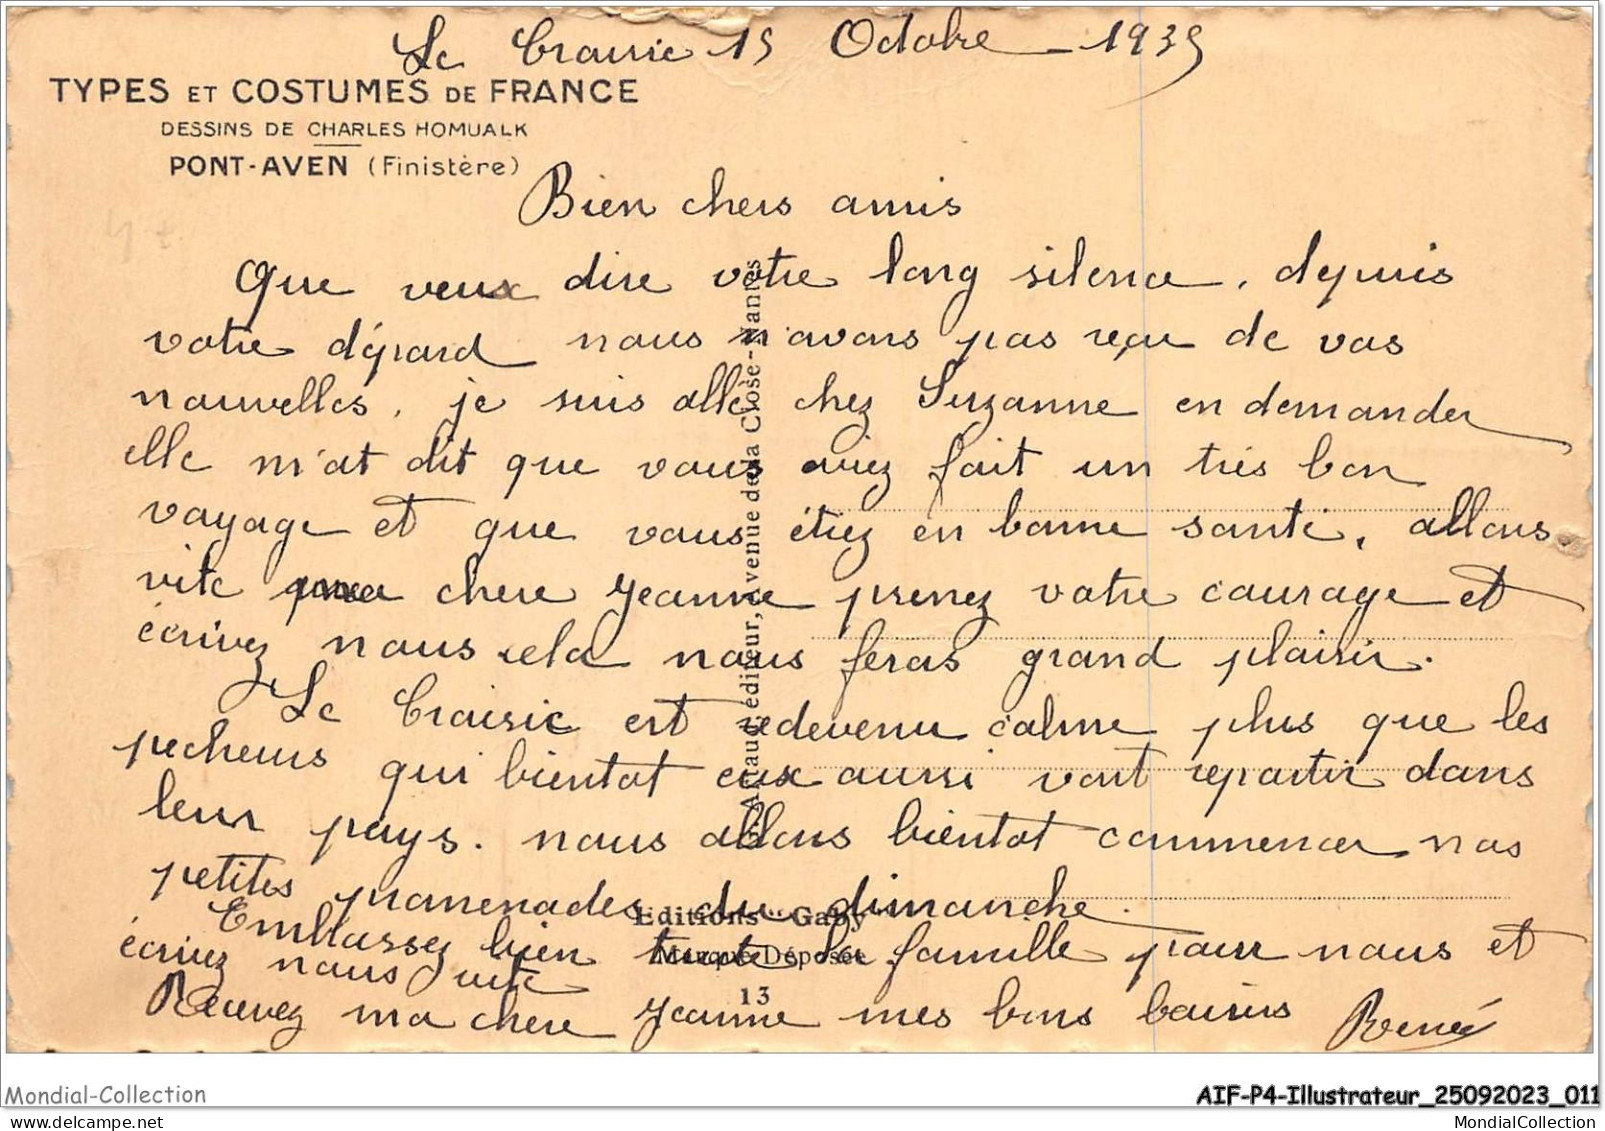 Le Croisic 15 Octobre - 1935
TYPES ET COSTUMES DE FRANCE
DESSINS DE CHARLES HOMUALK
PONT-AVEN (Finistère)
Bien chers amis
Que veux dire votre long silence, depuis
votre départ nous n'avons pas reçu de vos
nouvelles, je suis allé chez Suzanne en demander
elle m'at dit que vous aviez fait un très bon
voyage et que vous étiez en bonne santé, allons
vite ma chere Jeanne prenez votre courage et
écrivez nous cela nous feras grand plaisir.
Le Croisic est redevenu calme plus que les
pecheurs qui bientot eux aussi vont repartir dans
leur pays. nous allons bientot commencer nos
petites promenades du dimanche.
Embrassez bien toute la famille pour nous et
écrivez nous vite
Recevez ma chere Jeanne mes bons baisers René
Artaud, éditeur, avenue de la Close - Nantes
Editions "Gaby"
Marque Déposée
13
Mondial-Collection
AIF-P4-Illustrateur_25092023_011
MondialCollection.com
MondialCollection.com